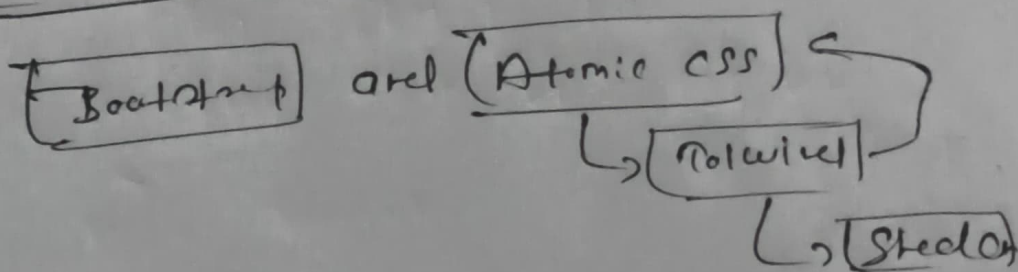 Bootstrap and Atomic CSS
Tailwind